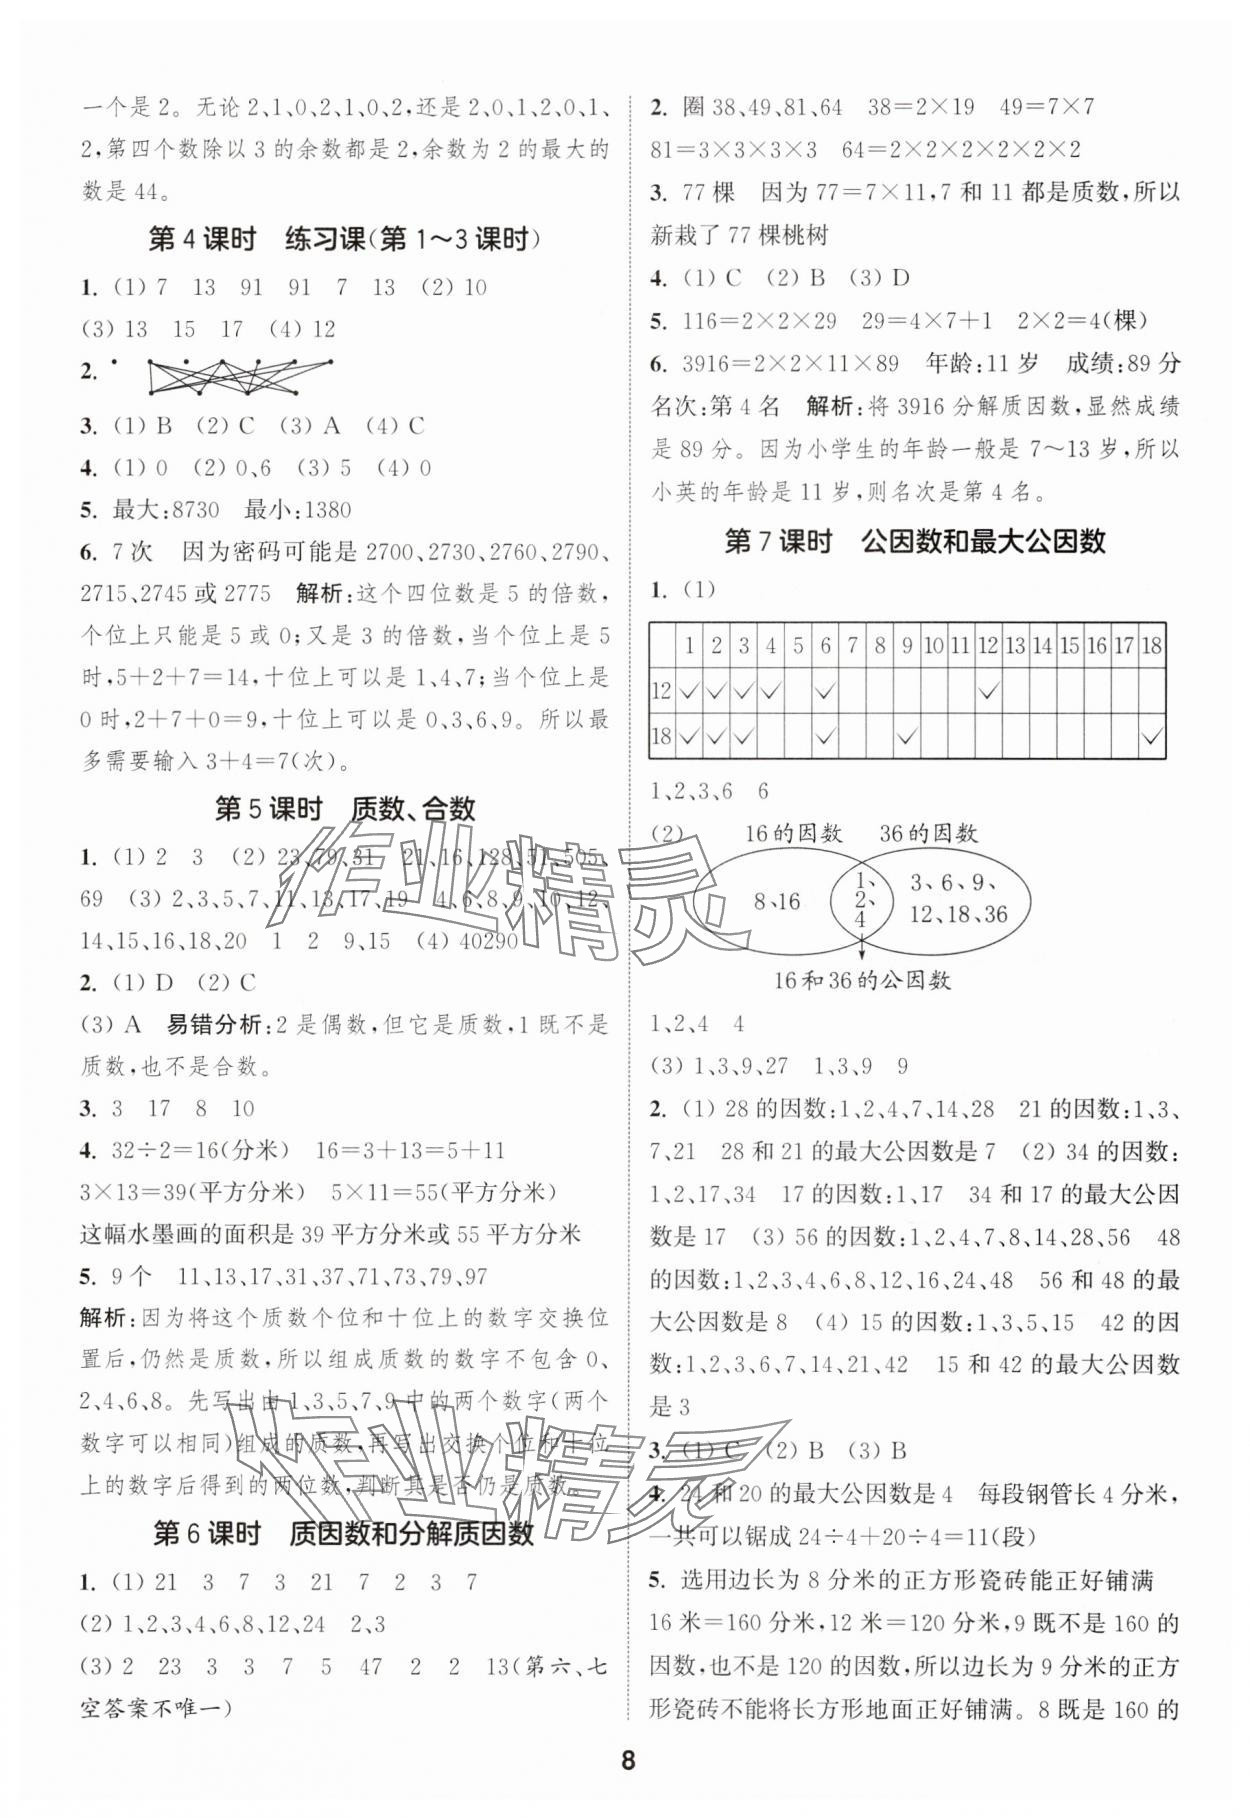 一个是 2。无论 2、1、0、2、1、0、2,还是 2、0、1、2、0、1、
2,第四个数除以 3 的余数都是 2,余数为 2 的最大的
数是 44。
第 4 课时 练习课(第 1～3 课时)
1. (1) 7 13 91 91 7 13 (2) 10
(3) 13 15 17 (4) 12
2.
3. (1) B (2) C (3) A (4) C
4. (1) 0 (2) 0、6 (3) 5 (4) 0
5. 最大:8730 最小:1380
6. 7 次 因为密码可能是 2700、2730、2760、2790、
2715、2745 或 2775 解析:这个四位数是 5 的倍数,
个位上只能是 5 或 0;又是 3 的倍数,当个位上是 5
时,5+2+7=14,十位上可以是 1、4、7;当个位上是
0 时,2+7+0=9,十位上可以是 0、3、6、9。所以最
多需要输入 3+4=7(次)。
第 5 课时 质数、合数
1. (1) 2 3 (2) 23、79、31 21、16、128、51、505、
69 (3) 2、3、5、7、11、13、17、19 4、6、8、9、10、12、
14、15、16、18、20 1 2 9、15 (4) 40290
2. (1) D (2) C
(3) A 易错分析:2 是偶数,但它是质数,1 既不是
质数,也不是合数。
3. 3 17 8 10
4. 32÷2=16(分米) 16=3+13=5+11
3×13=39(平方分米) 5×11=55(平方分米)
这幅水墨画的面积是 39 平方分米或 55 平方分米
5. 9 个 11、13、17、31、37、71、73、79、97
解析:因为将这个质数个位和十位上的数字交换位
置后,仍然是质数,所以组成质数的数字不包含 0、
2、4、6、8。先写出由 1、3、5、7、9 中的两个数字(两个
数字可以相同)组成的质数,再写出交换个位和十位
上的数字后得到的两位数,判断其是否仍是质数。
第 6 课时 质因数和分解质因数
1. (1) 21 3 7 3 21 7 2 3 7
(2) 1、2、3、4、6、8、12、24 2、3
(3) 2 23 3 3 7 5 47 2 2 13(第六、七
空答案不唯一)
2. 圈 38、49、81、64 38=2×19 49=7×7
81=3×3×3×3 64=2×2×2×2×2×2
3. 77 棵 因为 77=7×11,7 和 11 都是质数,所以
新栽了 77 棵桃树
4. (1) C (2) B (3) D
5. 116=2×2×29 29=4×7+1 2×2=4(棵)
6. 3916=2×2×11×89 年龄:11 岁 成绩:89 分
名次:第 4 名 解析:将 3916 分解质因数,显然成绩
是 89 分。因为小学生的年龄一般是 7～13 岁,所以
小英的年龄是 11 岁,则名次是第 4 名。
第 7 课时 公因数和最大公因数
1. (1)
1 2 3 4 5 6 7 8 9 10 11 12 13 14 15 16 17 18
12 ✓ ✓ ✓ ✓ ✓ ✓
18 ✓ ✓ ✓ ✓ ✓ ✓
1、2、3、6 6
(2) 16 的因数 36 的因数
8、16 1、2、4 3、6、9、12、18、36
16 和 36 的公因数
1、2、4 4
(3) 1、3、9、27 1、3、9 9
2. (1) 28 的因数:1、2、4、7、14、28 21 的因数:1、3、
7、21 28 和 21 的最大公因数是 7 (2) 34 的因数:
1、2、17、34 17 的因数:1、17 34 和 17 的最大公因
数是 17 (3) 56 的因数:1、2、4、7、8、14、28、56 48
的因数:1、2、3、4、6、8、12、16、24、48 56 和 48 的最
大公因数是 8 (4) 15 的因数:1、3、5、15 42 的因
数:1、2、3、6、7、14、21、42 15 和 42 的最大公因数
是 3
3. (1) C (2) B (3) B
4. 24 和 20 的最大公因数是 4 每段钢管长 4 分米,
一共可以锯成 24÷4+20÷4=11(段)
5. 选用边长为 8 分米的正方形瓷砖能正好铺满
16 米=160 分米,12 米=120 分米,9 既不是 160 的
因数,也不是 120 的因数,所以边长为 9 分米的正方
形瓷砖不能将长方形地面正好铺满。8 既是 160 的
8
作业精灵
作业精灵